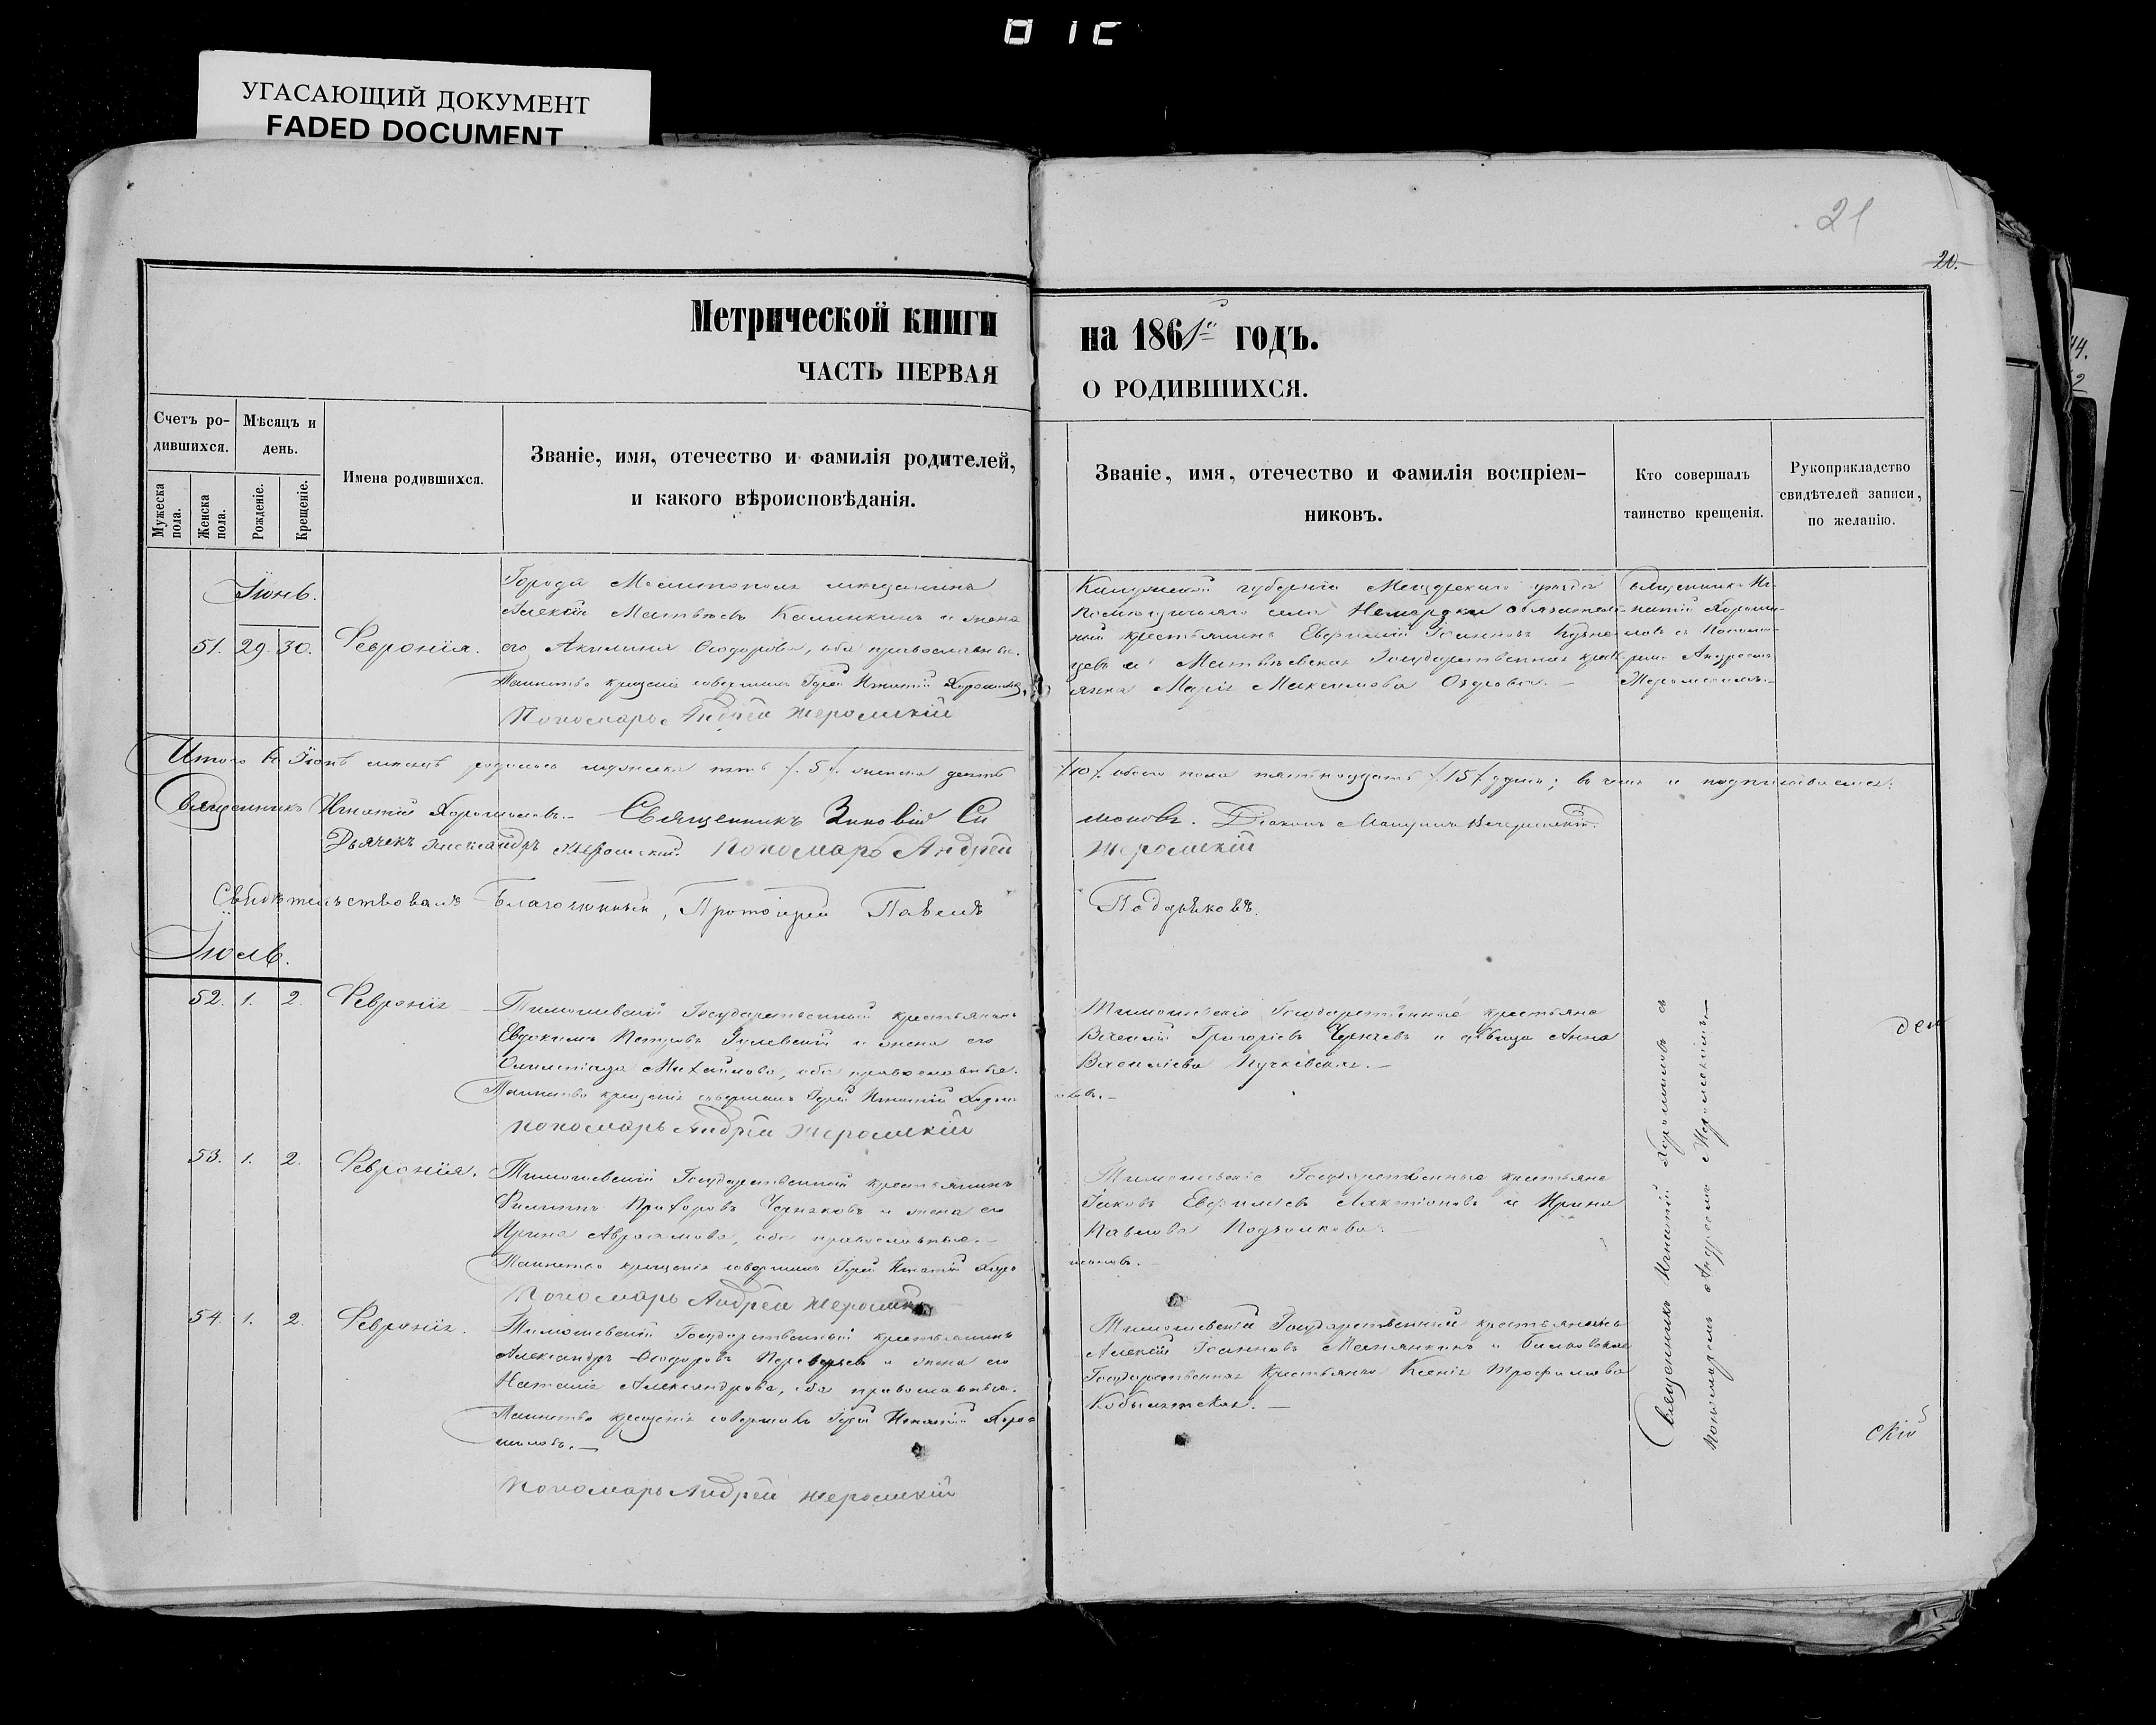 УГАСАЮЩИЙ ДОКУМЕНТ
FADED DOCUMENT
21
20.
Метрической книги
на 1861го годъ.
ЧАСТЬ ПЕРВАЯ
О РОДИВШИХСЯ.
Счетъ ро-
дившихся.
Мѣсяцъ и
день.
Мужеска
пола.
Женска
пола.
Рожденіе.
Крещеніе.
Имена родившихся.
Званіе, имя, отечество и фамилія родителей,
и какого вѣроисповѣданія.
Званіе, имя, отечество и фамилія воспріем-
никовъ.
Кто совершалъ
таинство крещенія.
Рукоприкладство
свидѣтелей записи,
по желанію.
Іюнь.
51. 29. 30. Февронія.
Города Мелитополя мещанинъ
Алексій Матвѣевъ Калинкинъ и жена
его Акилина Ѳеодорова, оба православные.
Таинство крещенія совершилъ Іерей Игнатій Хорошиловъ
Пономарь Андрей Жеромскій
губерніи уѣзда
села обязатель-
ный крестьянинъ Евфимій Іоанновъ Кузне-
цовъ и Матвѣевская Государственная крест
янка Марія Максимова
священникъ Иг-
натій Хороши-
ловъ съ Понома-
ремъ Андреемъ
Жеромскимъ.
Итого въ Іюнѣ мѣсяцѣ родилось мужеска пять /.5/. женска десять
/10/. обоего пола пятнадцать /.15/. душъ; въ чемъ и подписываемся:
Священникъ Игнатій Хорошиловъ. Священникъ Зиновій Си
моновъ. Діаконъ
Дьячекъ Александръ Жеромскій. Пономарь Андрей
Жеромскій
Свидѣтельствовалъ Благочинный, Протоіерей Павелъ
Іюль.
52. 1. 2. Февронія
Тимошевскій Государственный крестьянинъ
Евдокимъ Петровъ и жена его
Олимпіада Михайлова, оба православные.
Таинство крещенія совершилъ Іерей Игнатій Хороши
ловъ.
Пономарь Андрей Жеромскій
Тимошевскіе Государственные крестьяне
Василій Григорьевъ и дѣвица Анна
Васильева
53. 1. 2. Февронія.
Тимошевскій Государственный крестьянинъ
Филиппъ Прохоровъ Черняковъ и жена его
Ирина Авраамова, оба православные.
Таинство крещенія совершилъ Іерей Игнатій Хоро
шиловъ.
Пономарь Андрей Жеромскій
Тимошевскіе Государственные крестьяне
Іаковъ Евфиміевъ Лактіоновъ и Ирина
Павлова
54. 1. 2. Февронія.
Тимошевскій Государственный крестьянинъ
Александръ Ѳеодоровъ и жена его
Наталія Александрова, оба православные.
Таинство крещенія совершилъ Іерей Игнатій Хоро
шиловъ.
Пономарь Андрей Жеромскій
Тимошевскій Государственный крестьянинъ
Алексій Іоанновъ и
Государственная крестьянка Ксенія Трофимова
Священникъ Игнатій Хорошиловъ съ
пономаремъ Андреемъ Жеромскимъ.
скій